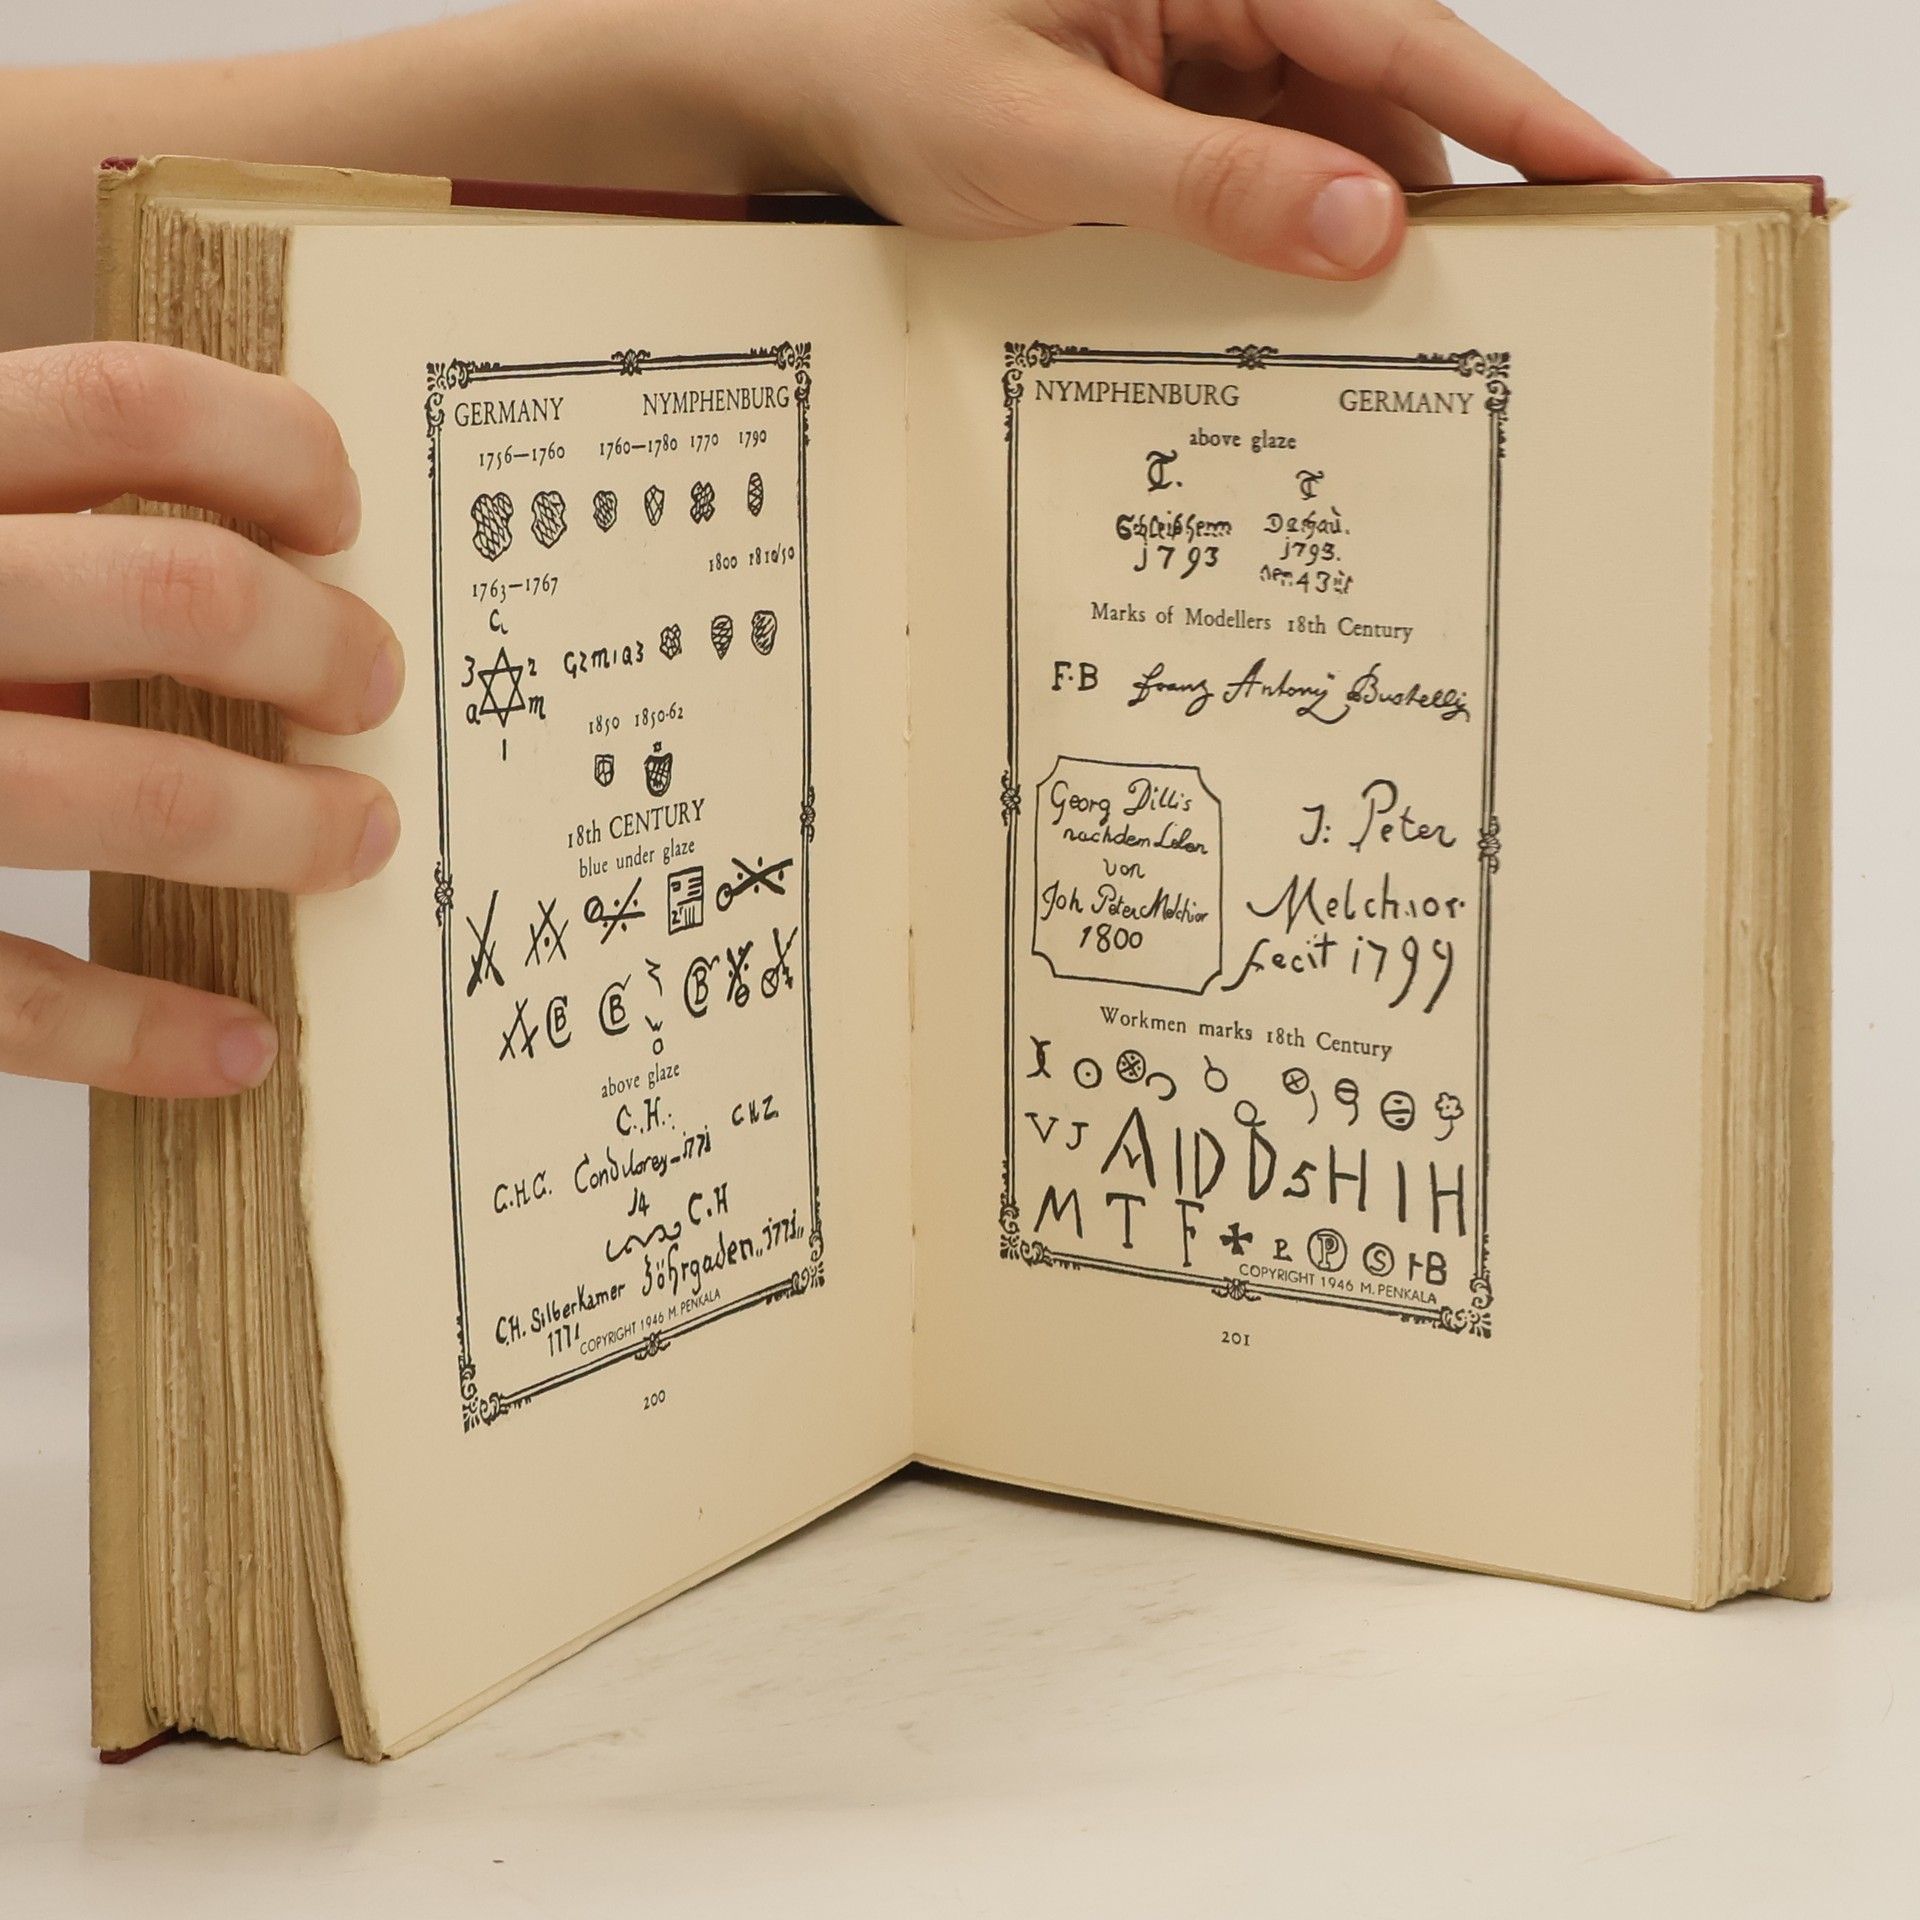 GERMANY NYMPHENBURG
1756—1760 1760—1780 1770 1790
1800 1810/50
1763—1767
C
3 2
a m
1
1850 1850-62
18th CENTURY
blue under glaze
CB CB CB
above glaze
C.H.: C H Z
C.H.C. 1771
C.H
C.H. Silberkamer Zöhrgaden „1771„
1771
COPYRIGHT 1946 M. PENKALA
200
NYMPHENBURG GERMANY
above glaze
C. C
Schleisheim Dachau.
j793 j793.
Marks of Modellers 18th Century
F·B Franz Antony Bustelly
Georg Dillis
nach dem Leben
von
Joh Peter Melchior
1800
J: Peter
Melchior
fecit 1799
Workmen marks 18th Century
V J A I D D 5 H I H
M T F P P S B
COPYRIGHT 1946 M. PENKALA
201